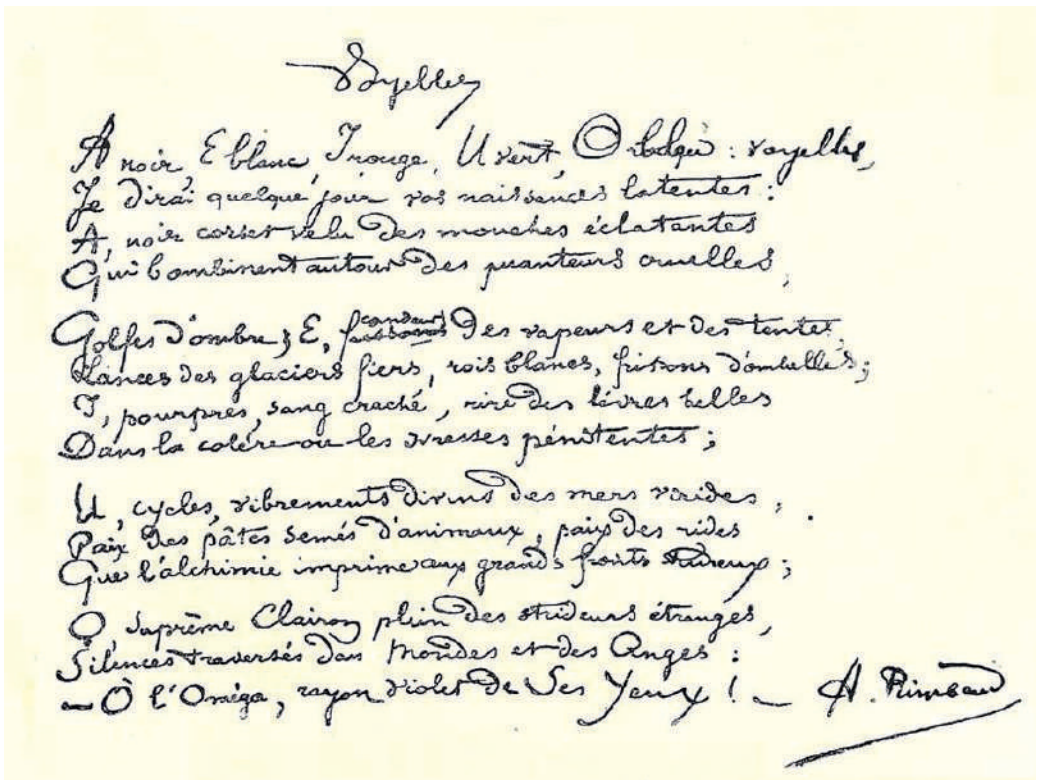 Voyelles
A noir, E blanc, I rouge, U vert, O bleu : voyelles,
Je dirai quelque jour vos naissances latentes :
A, noir corset velu des mouches éclatantes
Qui bombinent autour des puanteurs cruelles,
Golfes d'ombre ; E, candeurs des vapeurs et des tentes,
Lances des glaciers fiers, rois blancs, frissons d'ombelles ;
I, pourpres, sang craché, rire des lèvres belles
Dans la colère ou les ivresses pénitentes ;
U, cycles, vibrements divins des mers virides,
Paix des pâtis semés d'animaux, paix des rides
Que l'alchimie imprime aux grands fronts studieux ;
O, Suprême Clairon plein des strideurs étranges,
Silences traversés des Mondes et des Anges :
— O l'Oméga, rayon violet de Ses Yeux ! —
A. Rimbaud